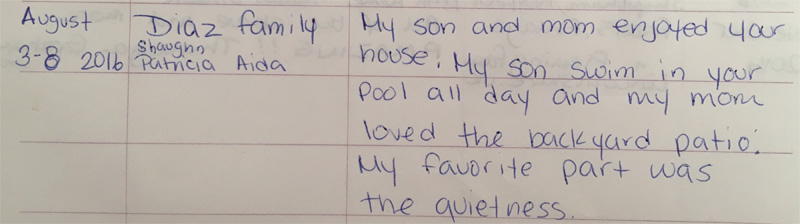 August
3-8 2016
Diaz family
Shaughn
Patricia Aida
My son and mom enjoyed your
house. My son swim in your
pool all day and my mom
loved the backyard patio.
My favorite part was
the quietness.